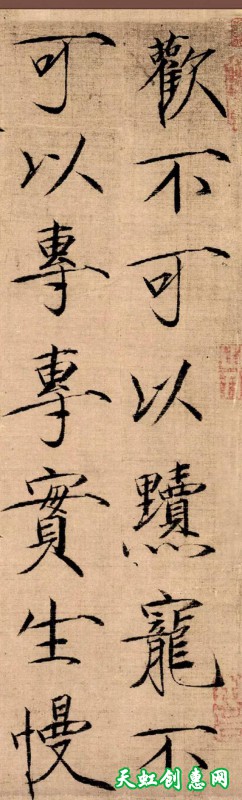 歡不可以黷寵不
可以專專實生慢
天虹创惠网